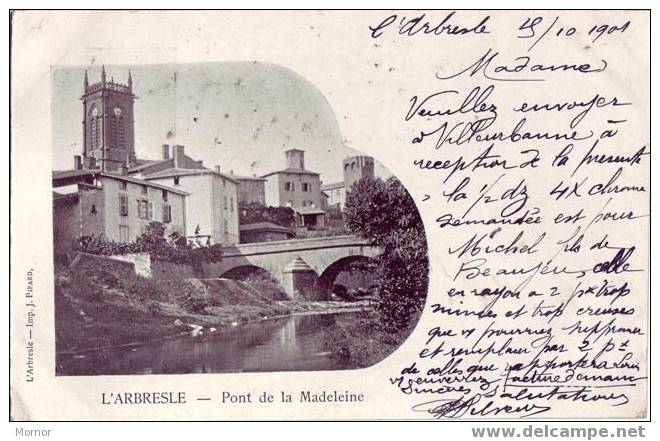 L'Arbresle 15/10 1901
Madame
Veuillez envoyer
à Villeurbanne à
réception de la présente
la 1/2 dz 4X chrome
demandée est pour
Michel fils de
Beaujeu, celle
en rayon a 2 px trop
minces et trop creuses
que v pourriez supprimer
et remplacer par 2 px
de celles que v apportera Louis
v enverrez facture demain
Sincères Salutations
L'ARBRESLE — Pont de la Madeleine
L'Arbresle — Imp. J. PIPARD.
www.delcampe.net